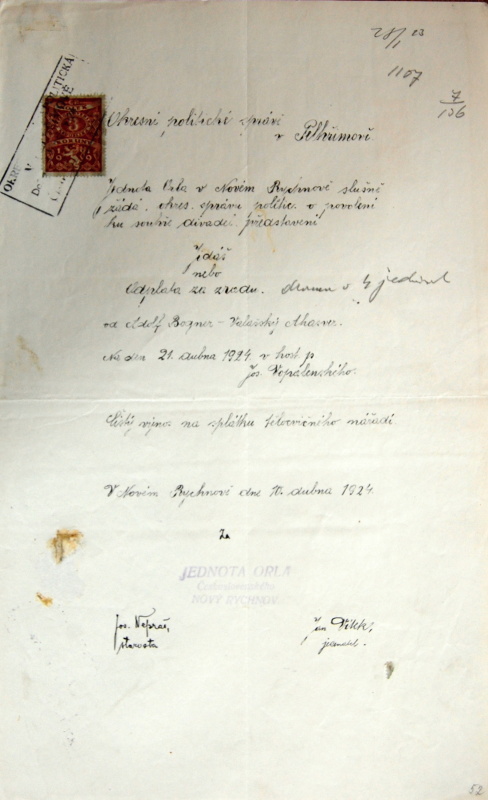 28/1 23
1107
7/136
OKRE
POLITICKÁ
3
Okresní politické správě
v Pelhřimově.
Jednota Orla v Novém Rychnově slušně
žádá okres. správu politic. o povolení
ku souhře divadel. představení
Jidáš
nebo
Odplata za zradu. drama v 4 jednání
od Adolf Bogner - Valašský Ahasver.
Na den 21. dubna 1924 v host. p.
Jos. Vopálenského.
Čistý výnos na splátku tělocvičného nářadí.
V Novém Rychnově dne 10. dubna 1924.
Za
JEDNOTA ORLA
Československého
NOVÝ RYCHNOV
Jos. Nepraš,
starosta
Jan Vlk,
jednatel.
52